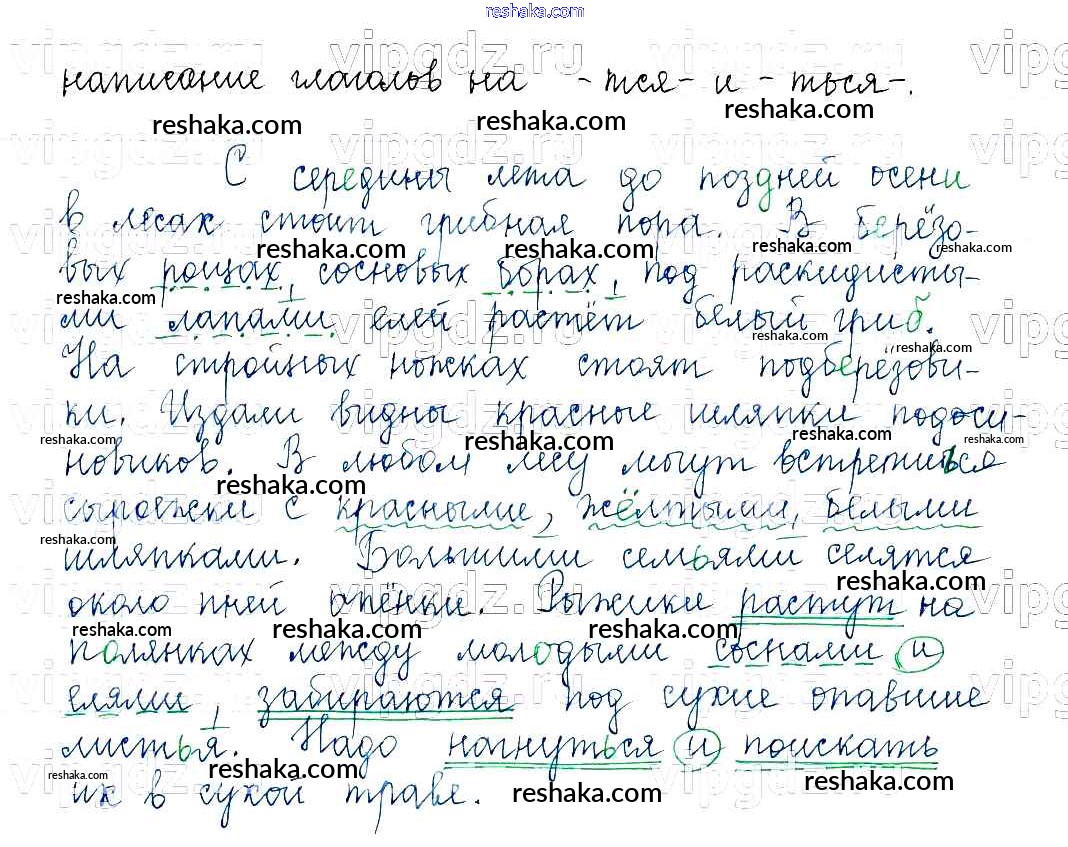 reshaka.com
написание глаголов на -тся- и -ться-.
С середины лета до поздней осени
в лесах стоит грибная пора. В берёзо-
вых рощах, сосновых борах, под раскидисты-
ми лапами елей растёт белый гриб.
На стройных ножках стоят подберёзови-
ки. Издали видны красные шляпки подоси-
новиков. В любом лесу могут встретиться
сыроежки с красными, жёлтыми, белыми
шляпками. Большими семьями селятся
около пней опёнки. Рыжики растут на
полянках между молодыми соснами и
елями, забираются под сухие опавшие
листья. Надо нагнуться и поискать
их в сухой траве.